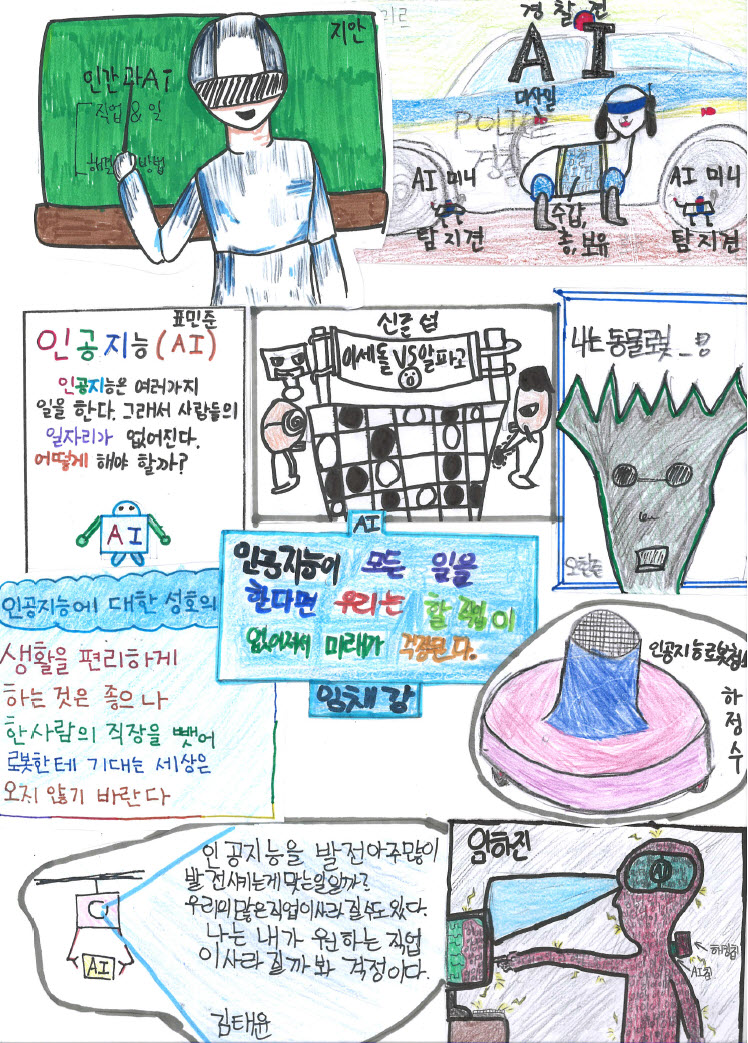 지안
인간과 AI
직업 & 일
해결 방법
경찰견
AI
미사일
POLICE
경찰
AI 미니
탐지견
수갑,
총, 보유
AI 미니
탐지견
표민준
인공지능(AI)
인공지능은 여러가지
일을 한다. 그래서 사람들의
일자리가 없어진다.
어떻게 해야 할까?
AI
신준섭
이세돌 VS 알파고
나는 동물로봇
AI
인공지능이 모든 일을
한다면 우리는 할 직업이
없어져서 미래가 걱정된다.
임채강
인공지능에 대한 성호의
생활을 편리하게
하는 것은 좋으나
한사람의 직장을 뺏어
로봇한테 기대는 세상은
오지 않기 바란다
인공지능로봇청
하정수
인공지능을 발전아주많이
발전시키는게 맞는일일까?
우리의 많은 직업이 사라질수도 있다.
나는 내가 원하는 직업
이 사라질까봐 걱정이다.
김태윤
AI
임하진
AI
해킹칩
AI칩